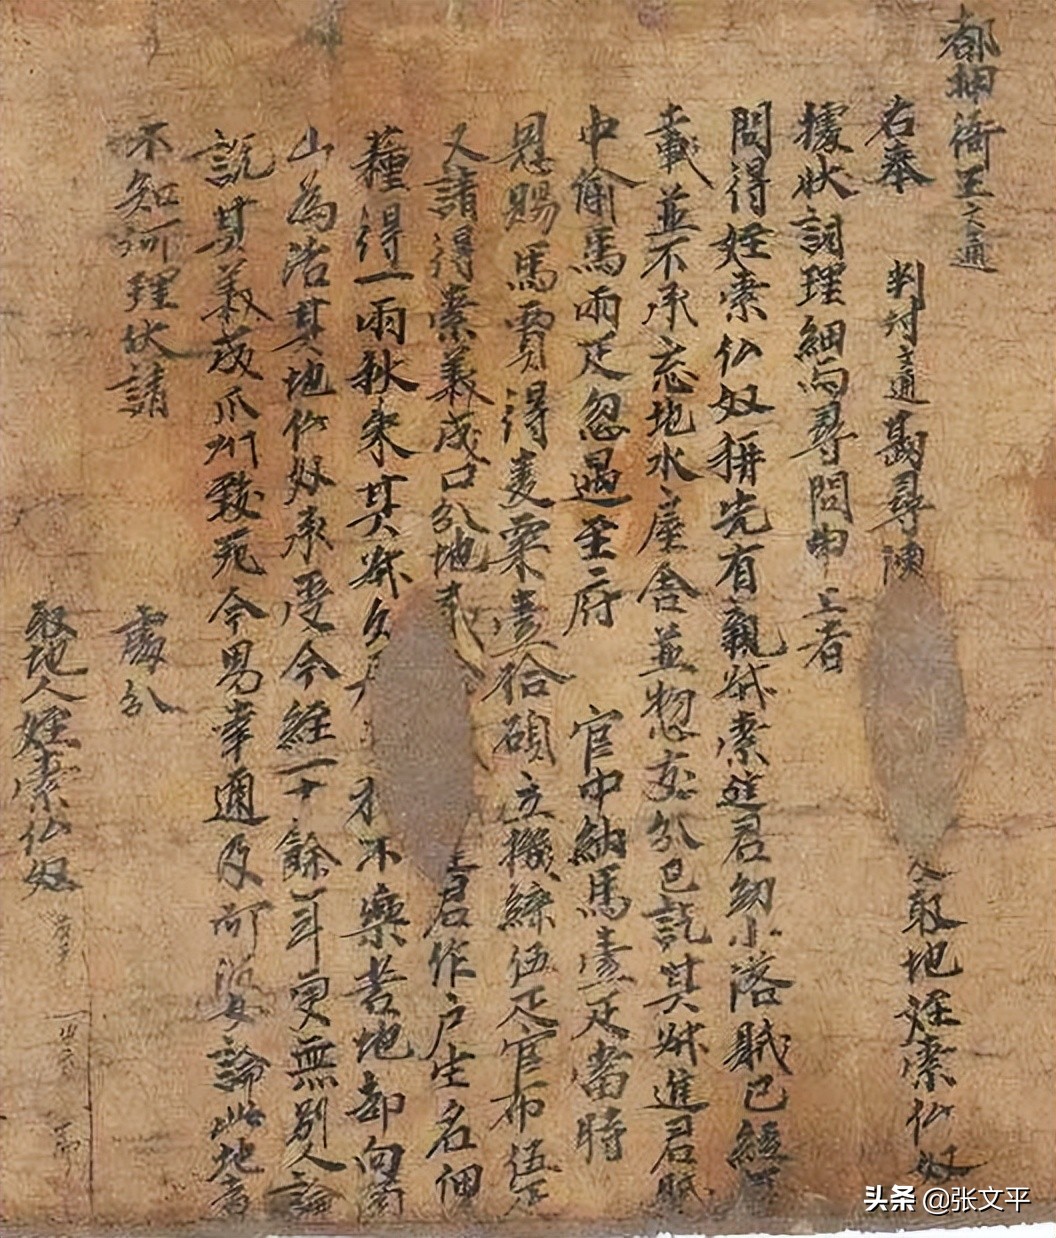 都押衙王文通
右奉　判付文通勘尋陳　及取地姪索仏奴
據狀詞理細与尋問申上者
問得姪索仏奴稱先有親叔索進君幼小落賊已經年
載並不承忘地水屋舍並惣支分已訖其叔進君賊
中偷馬兩疋忽遇至府　官中納馬壹疋當時
恩賜馬賈得麥粟壹拾碩立機緤伍疋官布伍疋
又請得索義成口分地貳　君作户主名佃
種得一兩秋來其叔久　不樂苔地却向南
山為活其地仏奴承受今經一十餘年更無別人論
說其義成瓜州致死今男幸通及阿婆論此地者
不知何理伏請
處分
取地人姪索仏奴
头条 @张文平